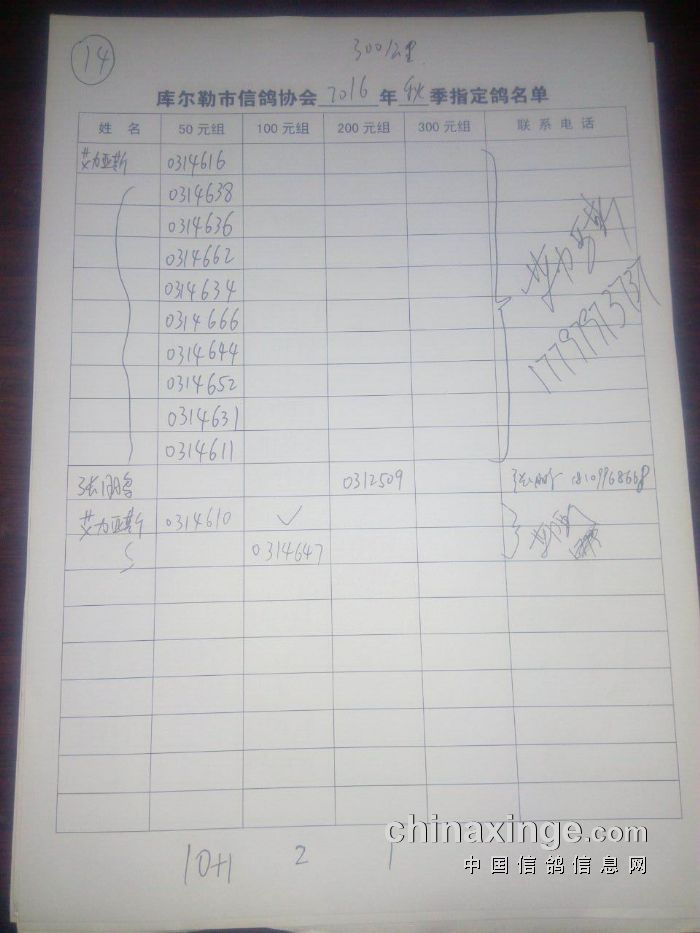 14
300公里
库尔勒市信鸽协会 2016 年 秋 季指定鸽名单
姓名 50元组 100元组 200元组 300元组 联系电话
艾力亚斯 0314616
0314638
0314636
0314662
0314634
0314666
0314644
0314652
0314631
0314611
0312509
艾力亚斯 0314610 ✓
0314647
10+1 2 1
chinaxinge.com
中国信鸽信息网